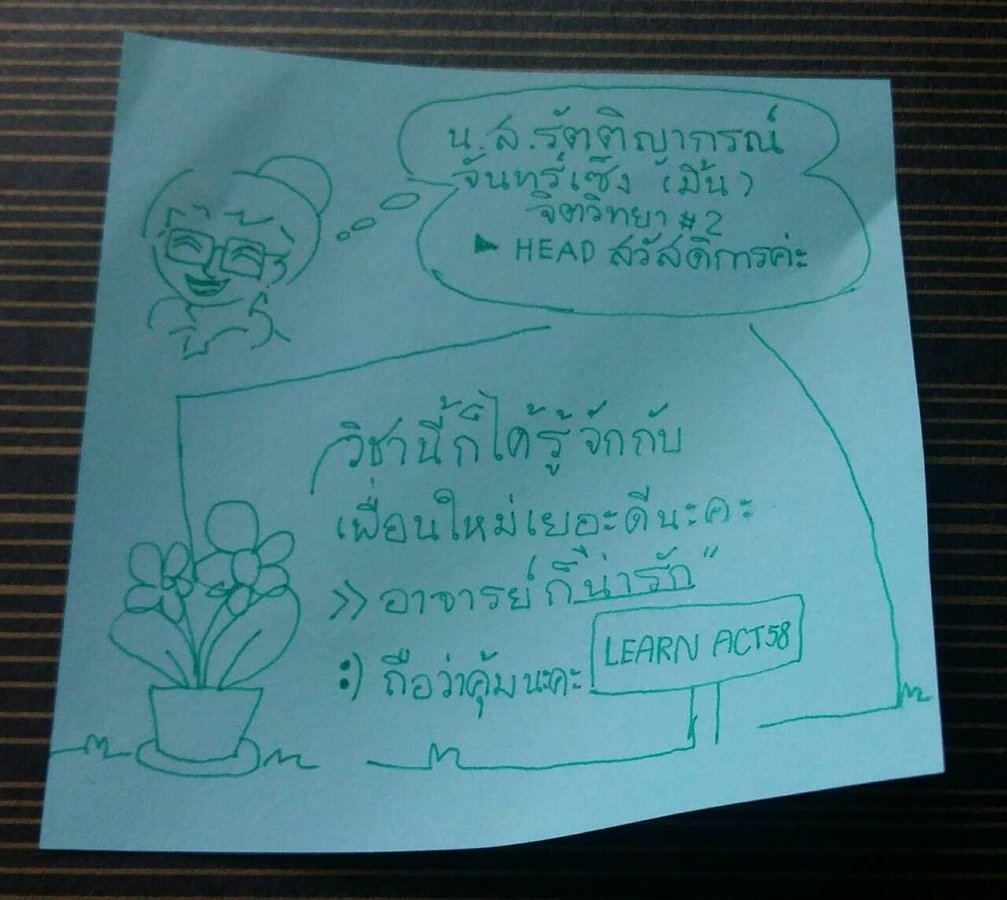 น.ส.รัตติญากรณ์
จันทร์เซ็ง (มิ้น)
จิตวิทยา #2
► HEAD สวัสดิการค่ะ
วิชานี้ก็ได้รู้จักกับ
เพื่อนใหม่เยอะดีนะคะ
>> อาจารย์ก็น่ารัก"
:) ถือว่าคุ้มนะคะ
LEARN ACT58